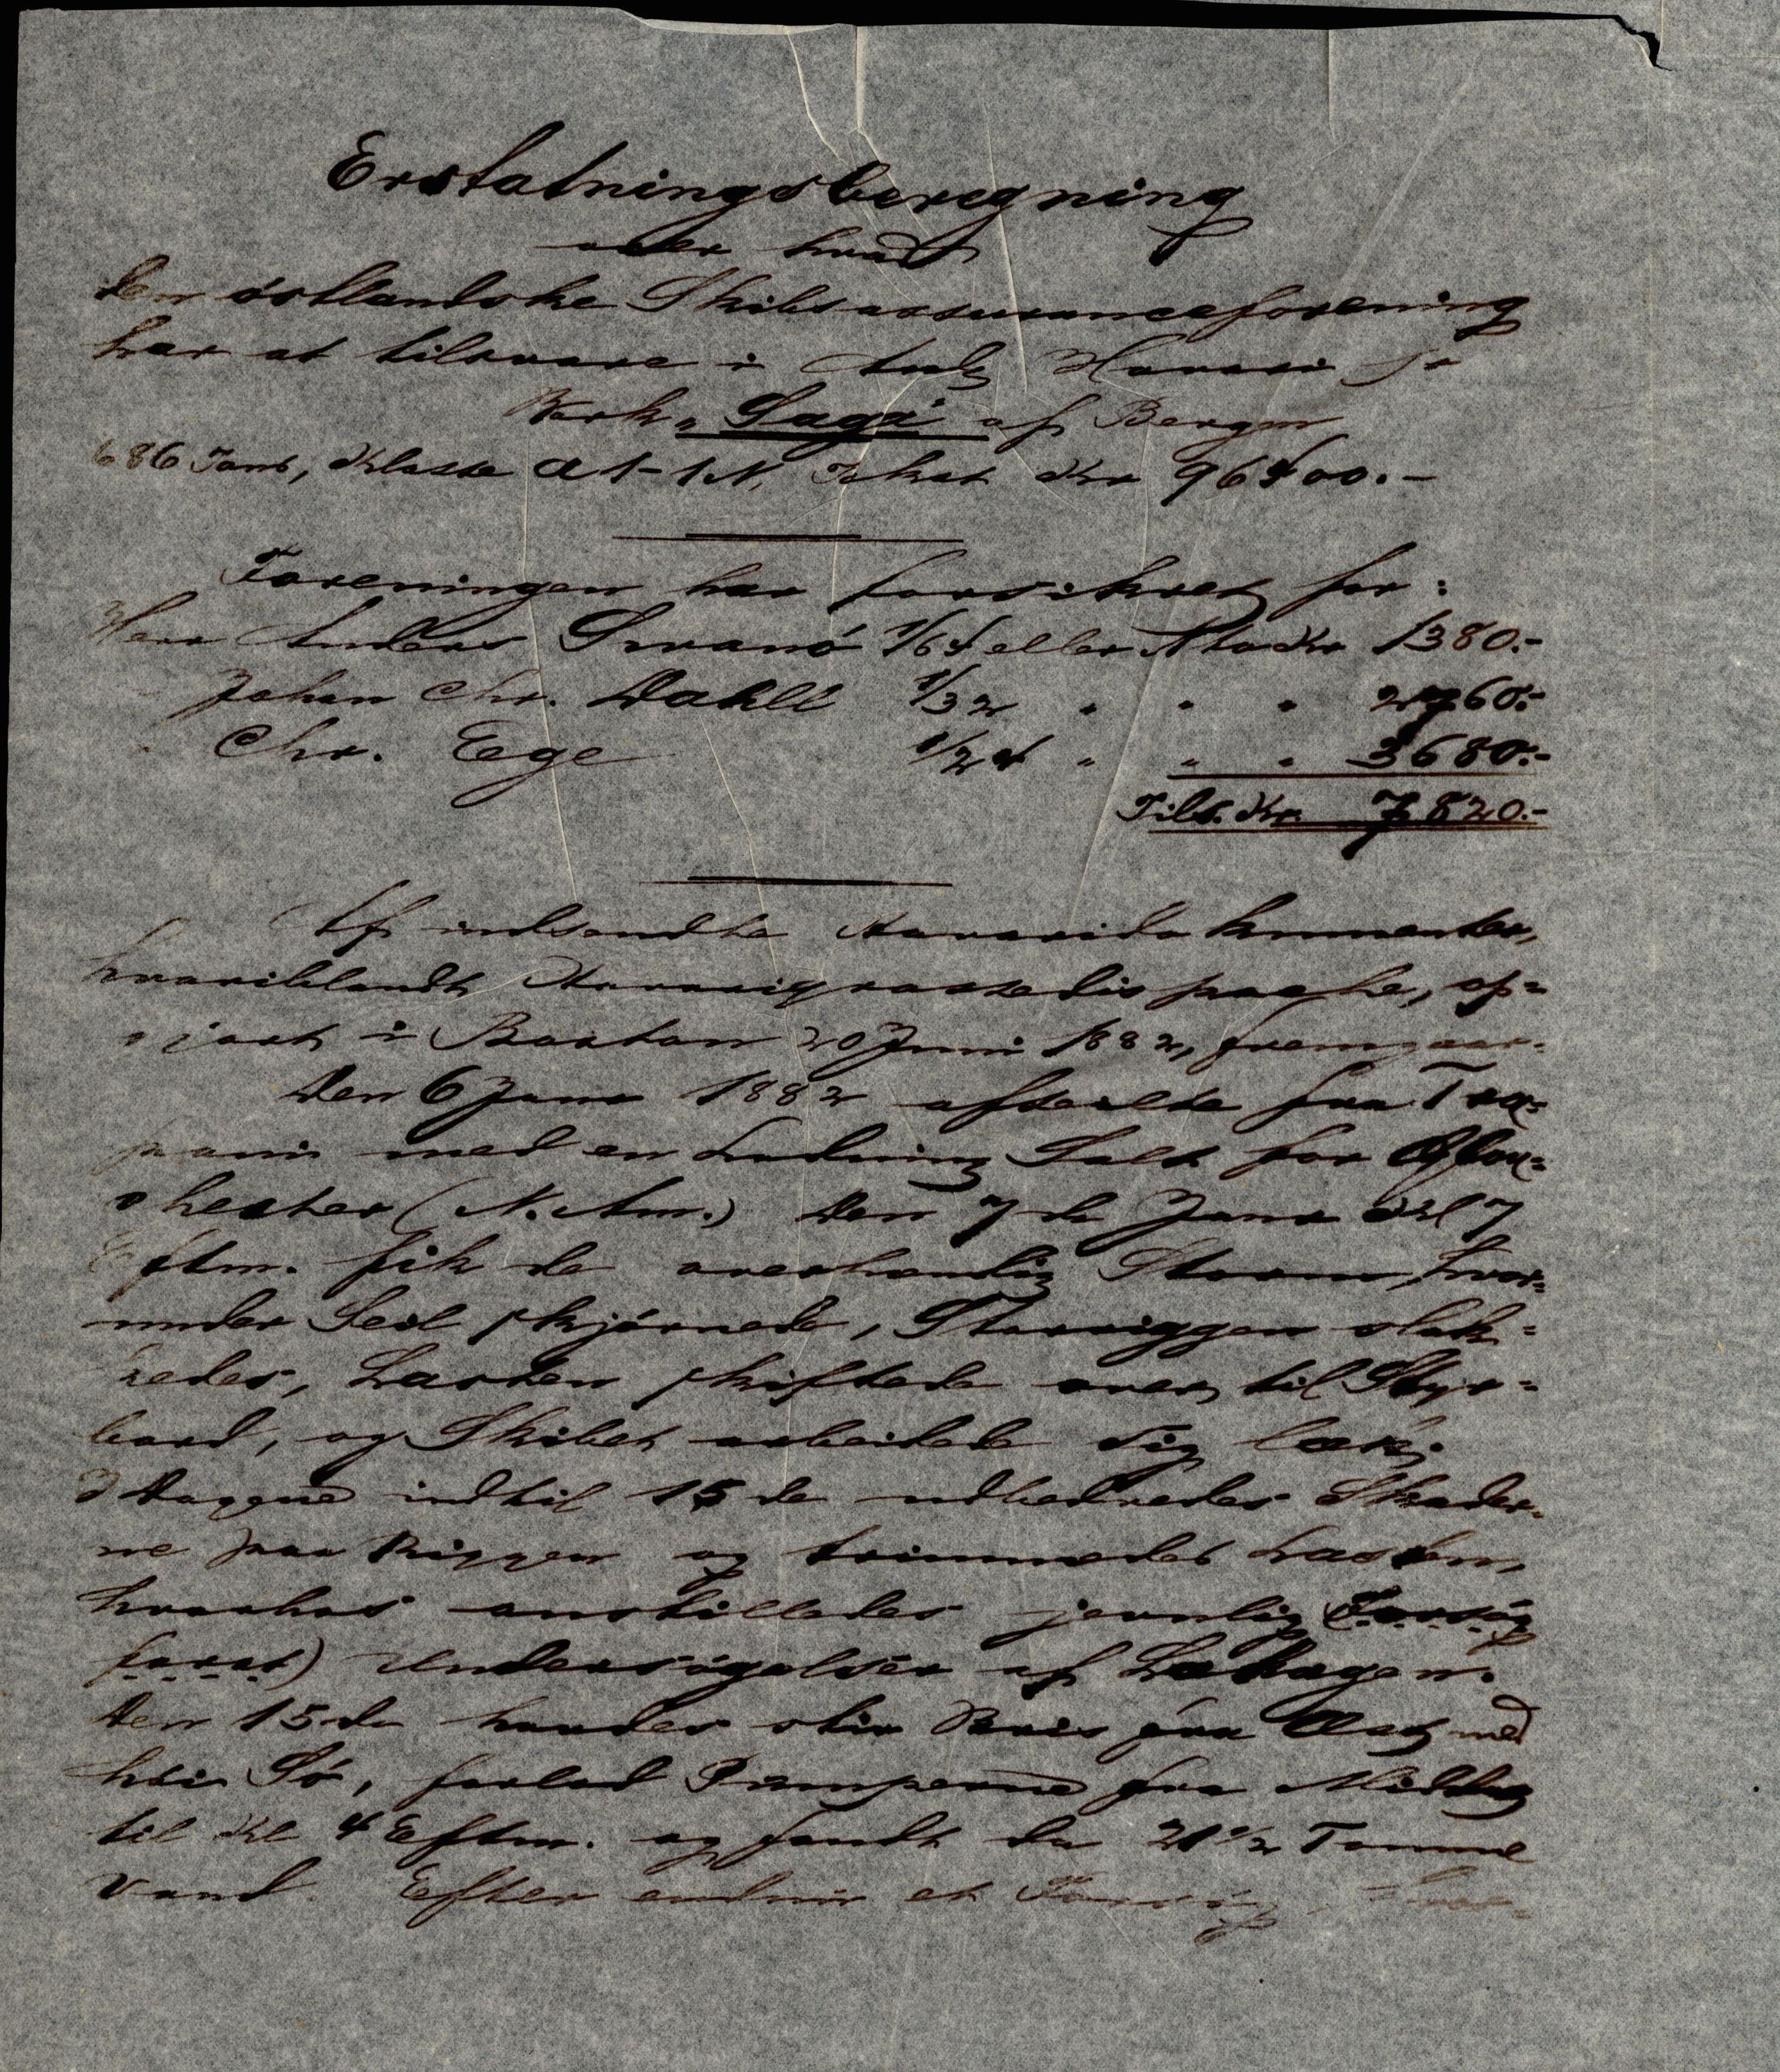 Erstatningsberegning
over hvad
den östlandske Skibsassuranceforening
har at tilsvare i Anl. Havari pr
Bark „Saga“ af Bergen
686 Tons, Klasse A1-1.1. Takst Kr 96500.-
Foreningen har forsikret for:
Herr Anders Svanö 1/64 eller Kr 1380.-
Johan Chr. Dahll 1/32 " " " 2760.-
Chr. Ege 1/24 " " " 3680.-
Tils. Kr. 7820.-
Af indsendte Havaridokumenter,
hvoriblandt Havarigrossedispache, op=
gjort i Boston 20 Juni 1882, fremgaar:
Den 6 Janr 1882 afseilte fra Tra=
pani med en Ladning Salt for Glou=
chester (N. Am.) Den 7de Janr Kl 7
Eftm. fik de overhændig Storm, hvor=
under Seil skjörnede, Storriggen slak=
kedes, Lasten skiftede over til Styr=
bord, og Skibet arbeidede sig læk.
I Dagene indtil 15de udbedredes Skader=
ne paa Riggen og trimmedes Lasten,
hvorhos anstilledes jevnlig (Forsög
forat) Undersögelser af Lækagen.
Den 15de havdes stiv Bris fra med
höi Sö, forlod Pumperne fra Middag
til Kl 4 Eftm. og fandt da 21 1/2 Tomme
Vand. Efter endnu et Forsög,